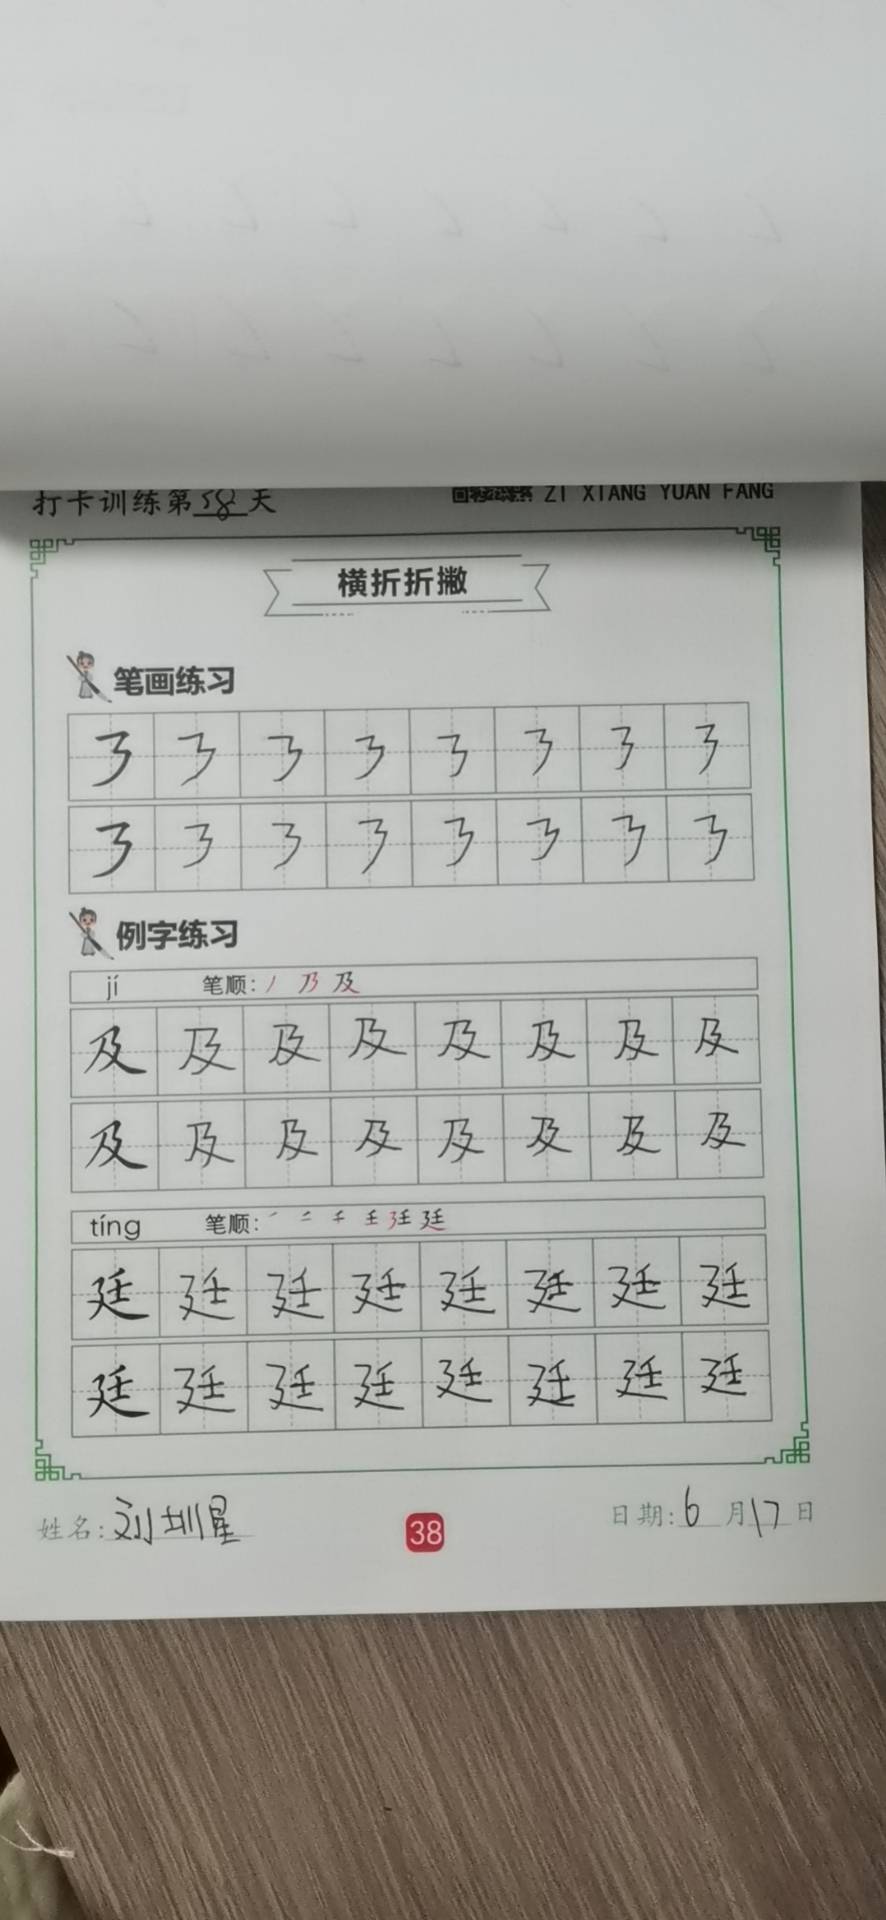 打卡训练第38天 ZI XIANG YUAN FANG
横折折撇
笔画练习
㇋ ㇋ ㇋ ㇋ ㇋ ㇋ ㇋ ㇋
㇋ ㇋ ㇋ ㇋ ㇋ ㇋ ㇋ ㇋
例字练习
jí 笔顺：丿 乃 及
及 及 及 及 及 及 及 及
及 及 及 及 及 及 及 及
tíng 笔顺： 廷
廷 廷 廷 廷 廷 廷 廷 廷
廷 廷 廷 廷 廷 廷 廷 廷
姓名：刘圳星 38 日期：6月17日